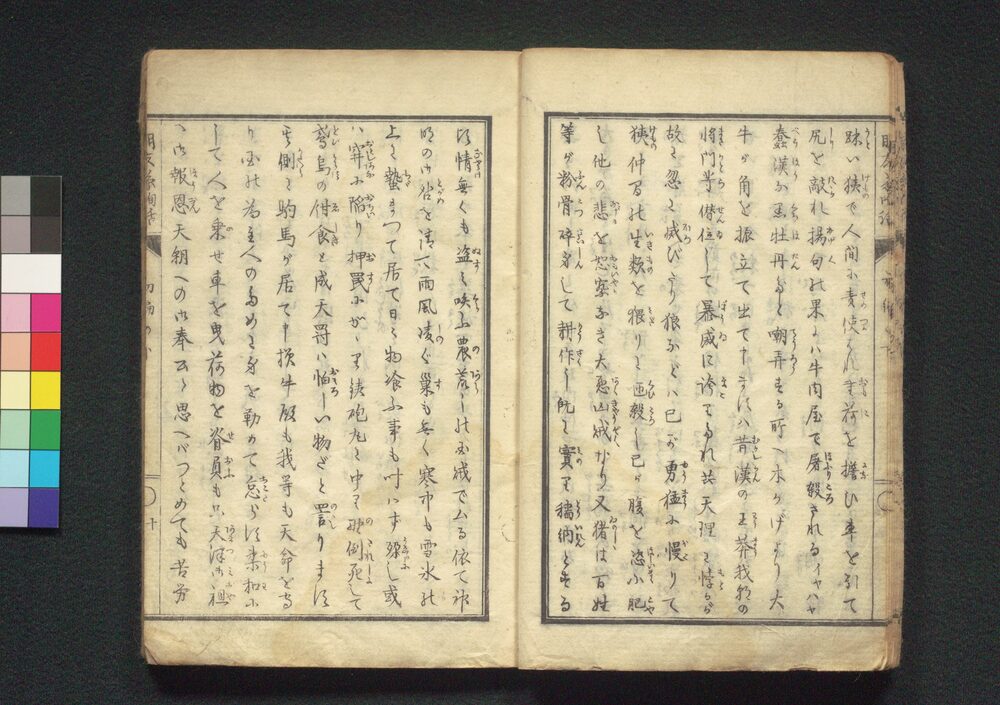 昧い狭で人間に責使はれ重荷を擔ひ車を引て
尻を敲れ揚句の果には牛肉屋で屠殺されるイヤハヤ
蠢漢な馬牡丹だと嘲弄する所へ木かげより大
牛が角を振立て出て申すには昔漢の王莽我朝の
将門等僣位して暴威に誇りたれ共天理に悖るが
故に忽に滅びたり狼などは己が勇猛に慢りて
狭仲間の生類を猥りに咂殺し己が腹を恣に肥
し他の悲を恕察なき大悪山賊なり又猪は百姓
等が粉骨碎身して耕作し既に實り穡納とする
を情無くも盗に喫ふ農荒しの国賊でムる依て神
明の御咎を請け雨風凌ぐ巣も無く寒中も雪氷の
上に蟄まつて居て日々物喰ふ事も叶はず殍し或
は穽に陥り押罠にかゝり鉄砲丸に中り斃倒死して
鳶烏の餌食と成天罰は怕しい物ざと詈ります
其側に駒馬が居て申様牛殿も我等も天命を守
り国の為主人のためと身を勤めて怠らず柔和に
して人を乗せ車を曳荷物を脊負も
へ御報恩天朝への御奉公と思へばつとめても苦労